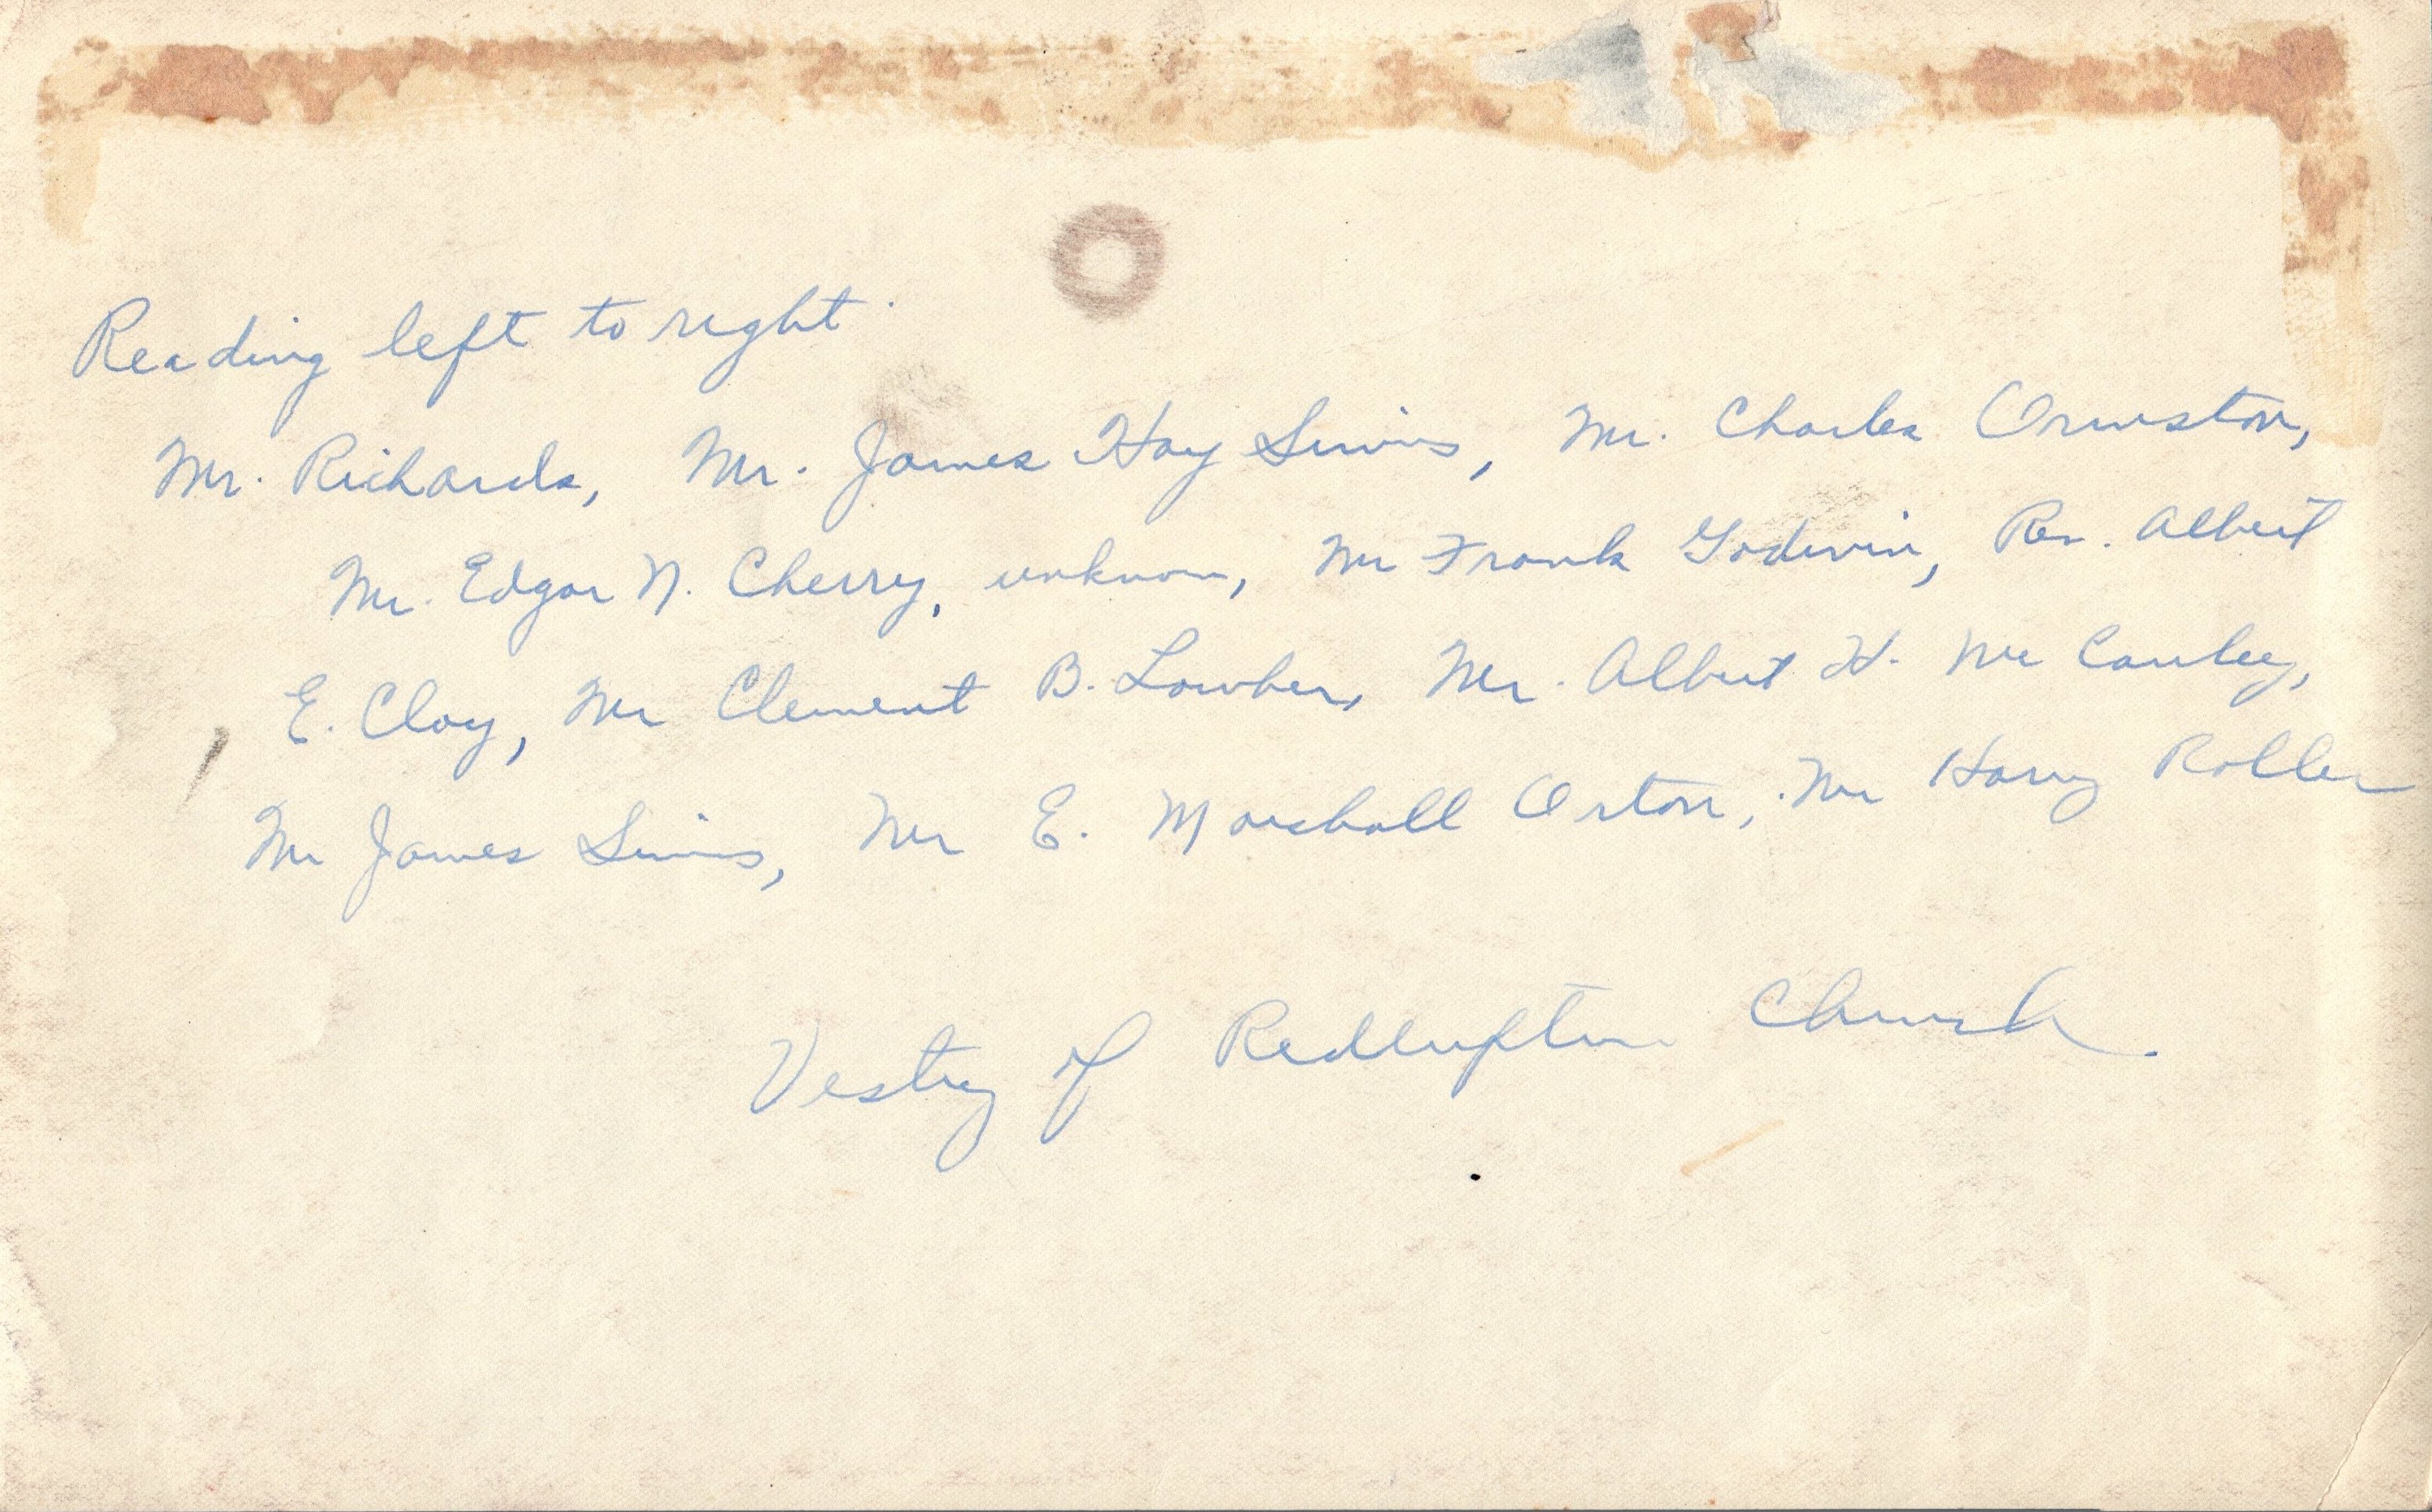 Reading left to right.
Mr. Richards, Mr. James Hay Simms, Mr. Charles Ormston,
Mr. Edgar N. Cherry, unknown, Mr Frank Godwin, Rev. Albert
E. Clay, Mr Clement B. Lowber, Mr. Albert H. Mc Cauley,
Mr James Simms, Mr E. Marshall Orton, Mr Harry Roller
Vestry of Redemption Church.